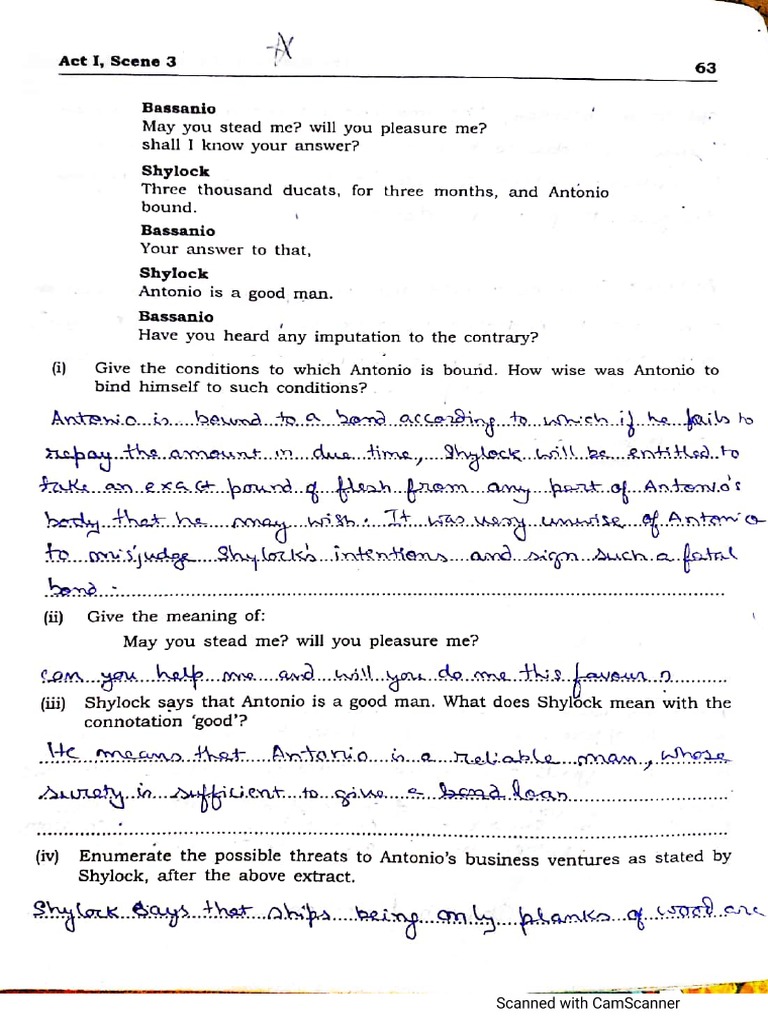 Act I, Scene 3
63
Bassanio
May you stead me? will you pleasure me?
shall I know your answer?
Shylock
Three thousand ducats, for three months, and Antonio
bound.
Bassanio
Your answer to that,
Shylock
Antonio is a good man.
Bassanio
Have you heard any imputation to the contrary?
(i) Give the conditions to which Antonio is bound. How wise was Antonio to
bind himself to such conditions?
Antonio is bound to a bond according to which if he fails to
repay the amount in due time, Shylock will be entitled to
take an exact pound of flesh from any part of Antonio's
body that he may wish. It was very unwise of Antonio
to misjudge Shylock's intentions and sign such a fatal
bond.
(ii) Give the meaning of:
May you stead me? will you pleasure me?
can you help me and will you do me this favour?
(iii) Shylock says that Antonio is a good man. What does Shylock mean with the
connotation 'good'?
He means that Antonio is a reliable man, whose
surety is sufficient to give a bond loan
(iv) Enumerate the possible threats to Antonio's business ventures as stated by
Shylock, after the above extract.
Shylock says that ships being only planks of wood are
Scanned with CamScanner